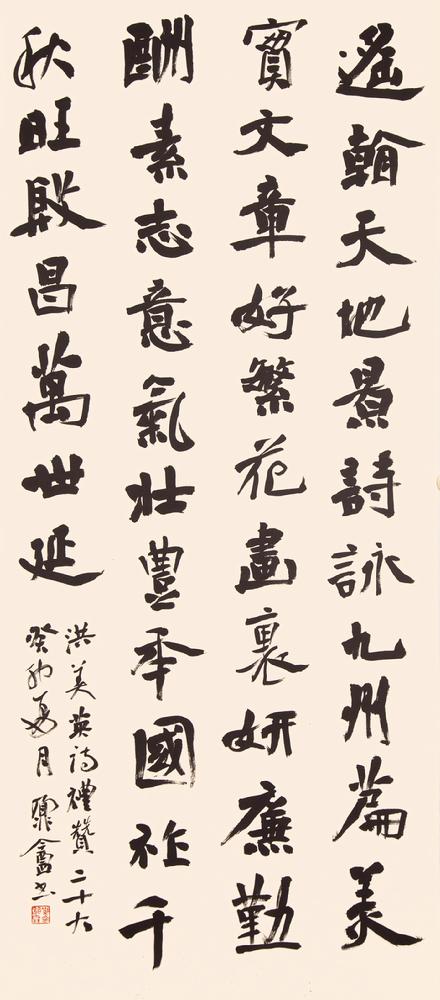 遙翰天地景詩詠九州篇美
實文章好繁花畫裏妍廉勤
酬素志意氣壯豊年國祚千
秋旺殷昌萬世延
洪美英詩禮贊二十大
癸卯夏月盦書